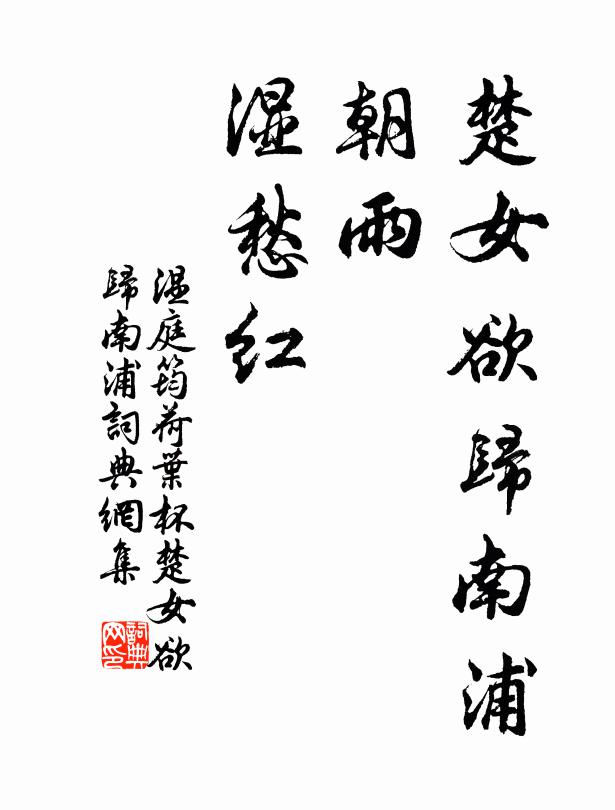 楚女欲歸南浦
朝雨
湿愁红
温庭筠荷葉杯楚女欲
歸南浦詞典網集
詞典
网印